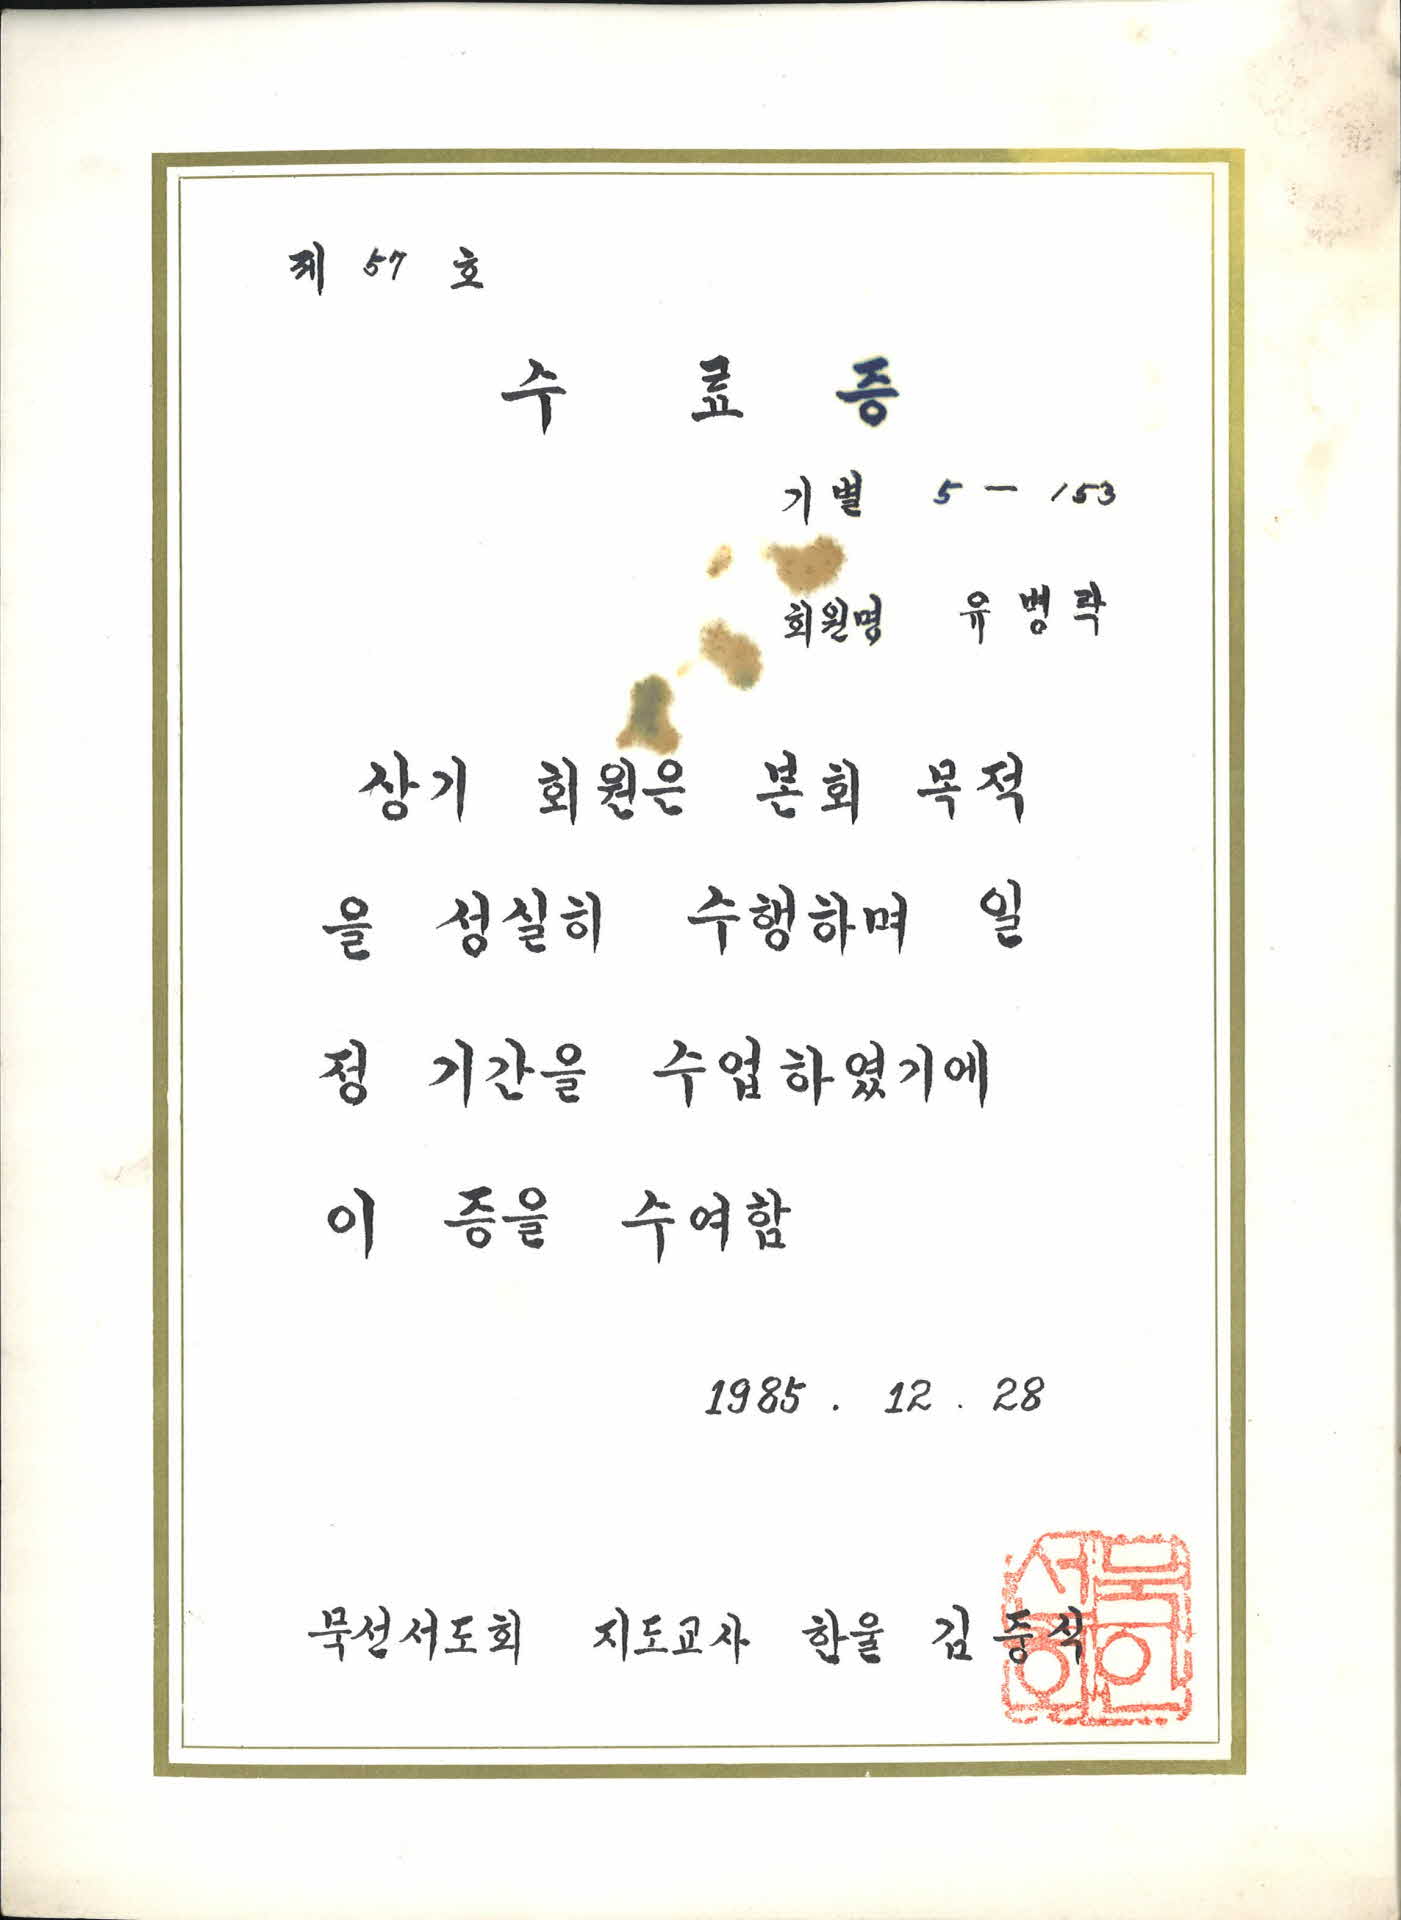 제 57 호
수 료 증
기별 5 - 153
회원명 유병락
상기 회원은 본회 목적
을 성실히 수행하며 일
정 기간을 수업하였기에
이 증을 수여함
1985. 12. 28
묵선서도회 지도교사 한울 김중식